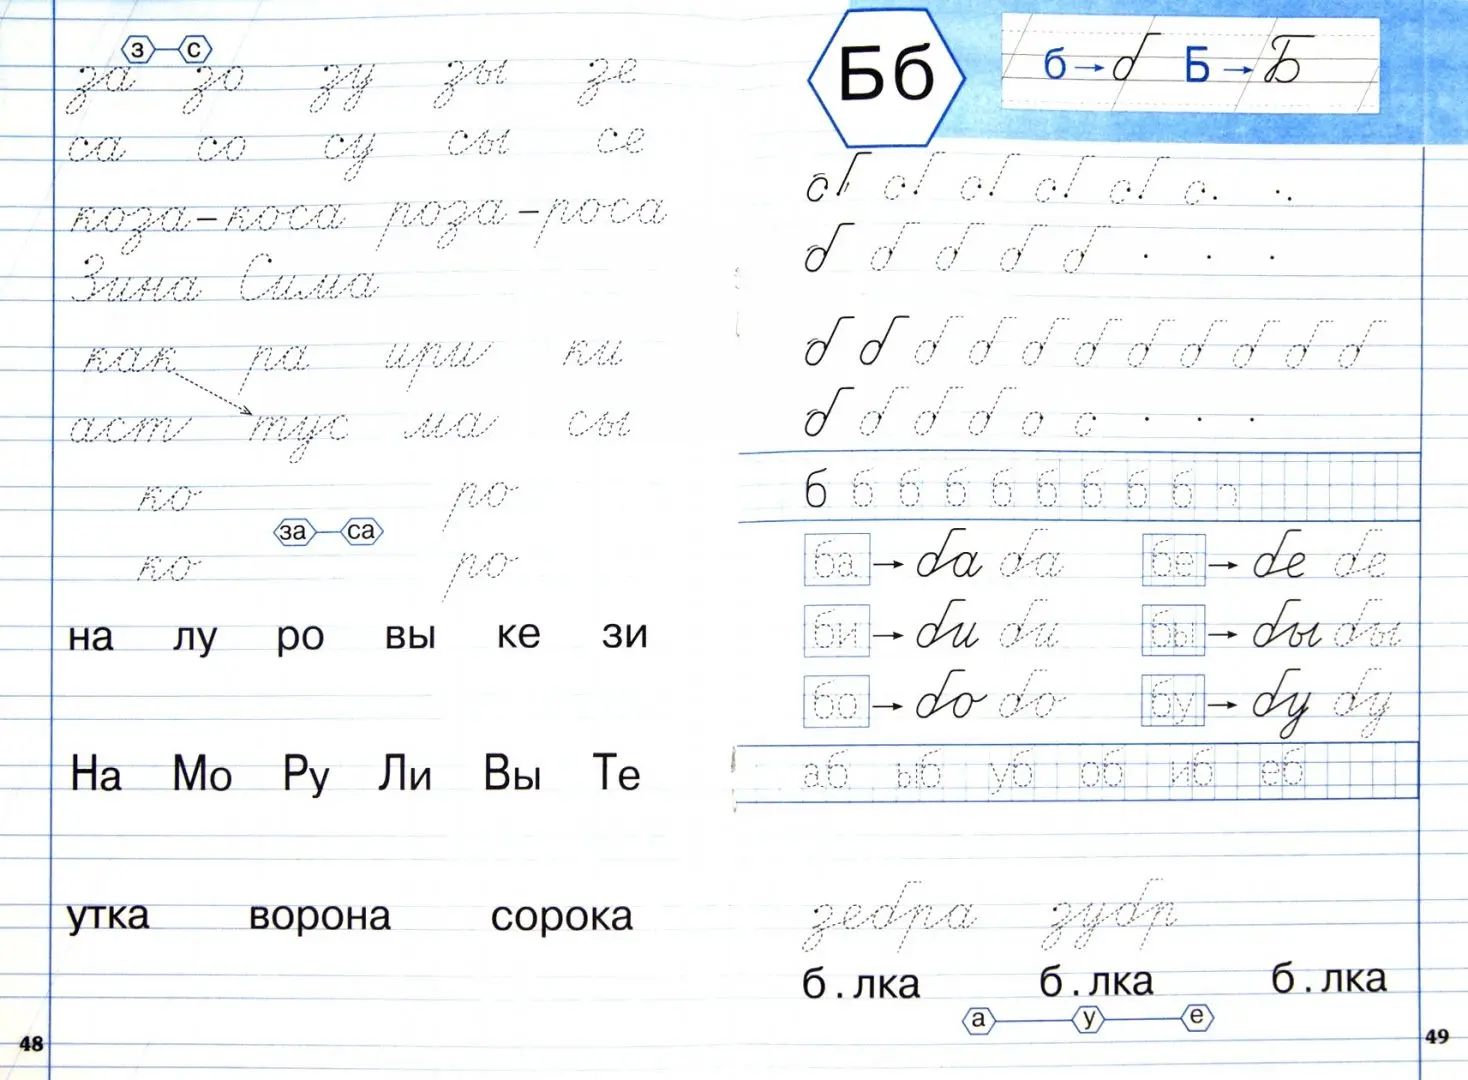 з с
за зо зу зы зе
са со су сы се
коза – коса роза – роса
Зина Сима
как ра ири ки
аст тус ма сы
ко ро
за са
ко ро
на лу ро вы ке зи
На Мо Ру Ли Вы Те
утка ворона сорока
48
Бб
б → б Б → Б
б б б б б
б б б б б
б б б б б б б б б б б
б б б б о с
б б б б б б б б б
ба → ба ба бе → бе бе
би → би би бы → бы бы
бо → бо бо бу → бу бу
аб ыб уб об иб еб
зебра зубр
б.лка б.лка б.лка
а у е
49